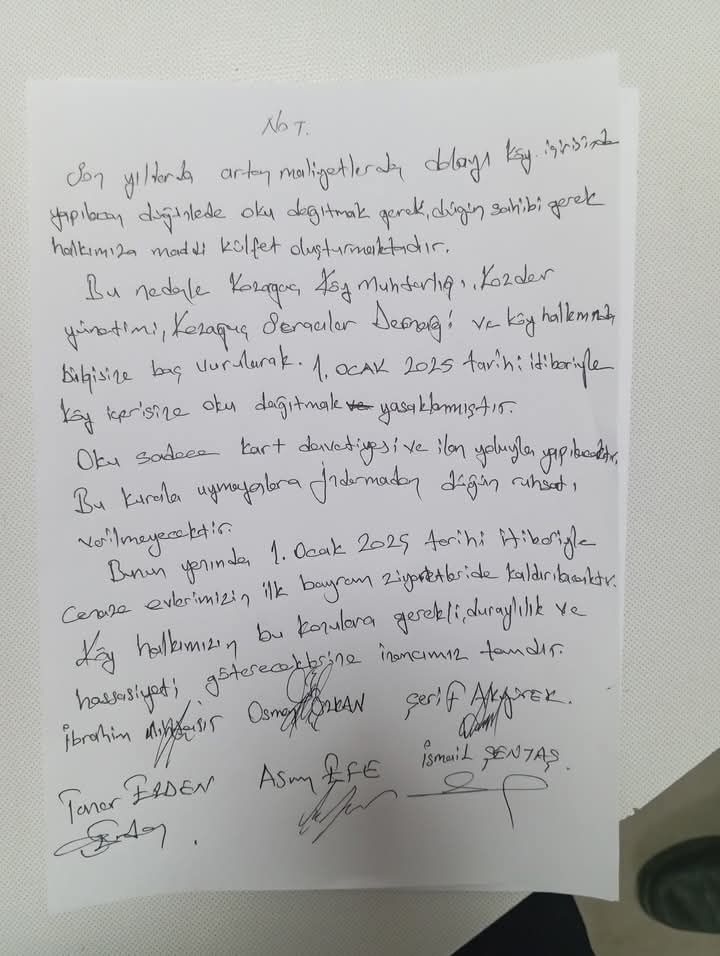 NOT.
Son yıllarda artan maliyetlerden dolayı köy içirisinde
yapılacan düğünlede oku dağıtmak gerek, düğün sahibi gerek
halkımıza maddi külfet oluşturmaktadır.
Bu nedenle Kozağaç Köy Muhtarlığı, Kozder
yünetimi, Kozağaç Seracılar Derneği ve köy halkımında
bilgisine baş vurularak. 1. OCAK 2025 tarihi itibariyle
Köy içerisine oku dağıtmak ve yasaklanmıştır.
Oku sadece kart davetiyesi ve ilan yoluyla yapılacaktır.
Bu kurala uymayanlara Jandarmadan düğün ruhsatı,
verilmeyecektir.
Bunun yanında 1. Ocak 2025 tarihi itibariyle
Cenaze evlerimizin ilk bayram ziyaretleride kaldırılacaktır.
Köy halkımızın bu konulara gerekli, duraylılık ve
hassasiyeti göstereceklerine inancımız tamdır.
İbrahim Osman ÖZKAN Şerif
Taner ERDEN Asım EFE İsmail ŞENTAŞ.